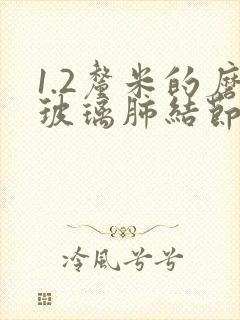 1.2釐米的磨
玻璃肺結節
冷風兮兮